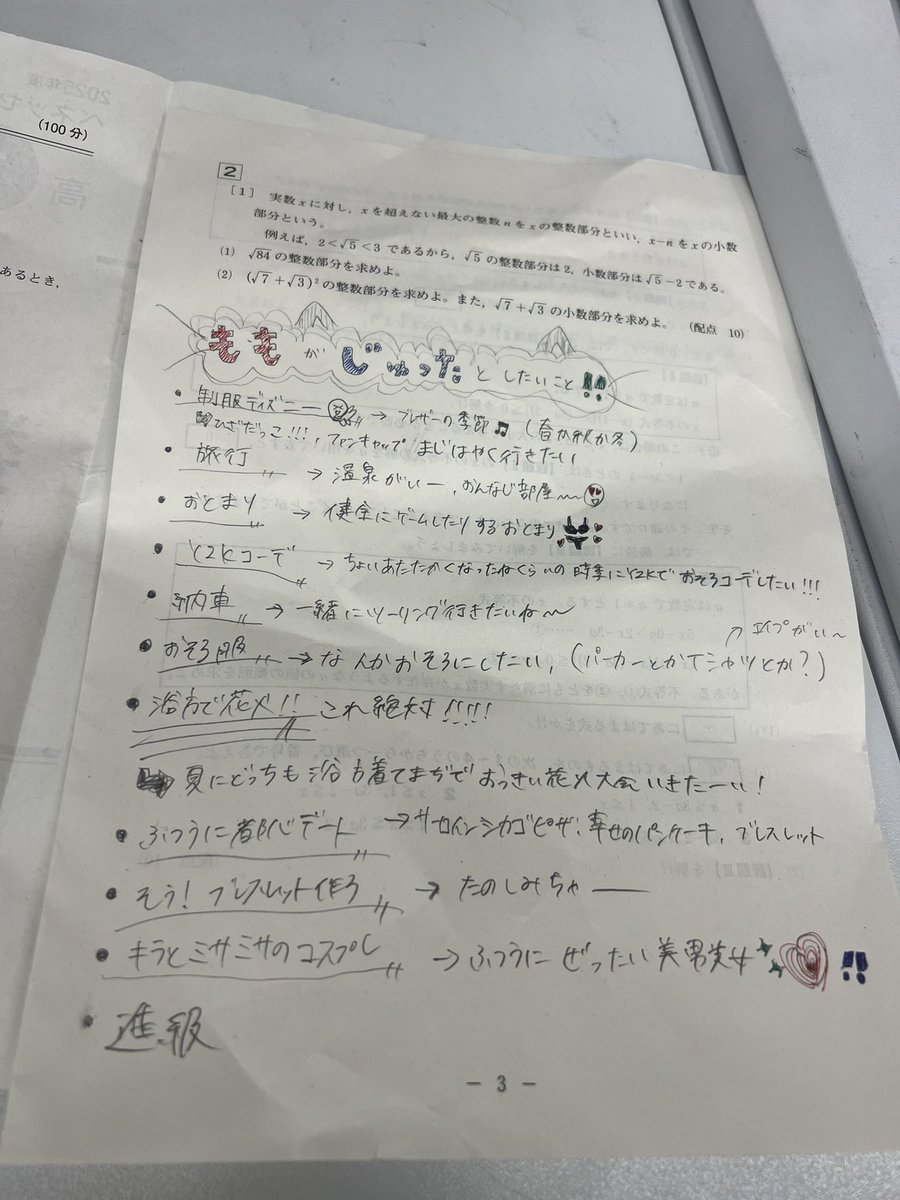 2025年度
ベネッセ
高
(100分)
あるとき,
2
[1] 実数xに対し,xを超えない最大の整数nをxの整数部分といい,x−nをxの小数
部分という。
例えば,2<√5<3であるから,√5の整数部分は2,小数部分は√5−2である。
(1) √84の整数部分を求めよ。
(2) (√7+√3)²の整数部分を求めよ。また,√7+√3の小数部分を求めよ。 (配点 10)
ももがじゅったとしたいこと!!
・制服ディズニー → ブレザーの季節♫(春か秋か冬)
ひざだっこ!!!,ファンキャップ まじはやく行きたい
・旅行 → 温泉がいー,おんなじ部屋〜
・おとまり → 健全にゲームしたりするおとまり
・Y2Kコーデ → ちょいあたたかくなったねくらいの時季にY2Kでおそろコーデしたい!!!
・納車 → 一緒にツーリング行きたいね〜
↗エイプがい〜
・おそろ服 → なんかおそろにしたい,(パーカーとかTシャツとか?)
・浴衣で花火!! これ絶対!!!!
夏にどっちも浴衣着てまぢでおっきい花火大会いきたーい!
・ふつうに都心デート →サーロインシカゴピザ,幸せのパンケーキ,ブレスレット
・そう!ブレスレット作ろ → たのしみちゃー
・キラとミサミサのコスプレ → ふつうにぜったい美男美女!!
・進級
− 3 −